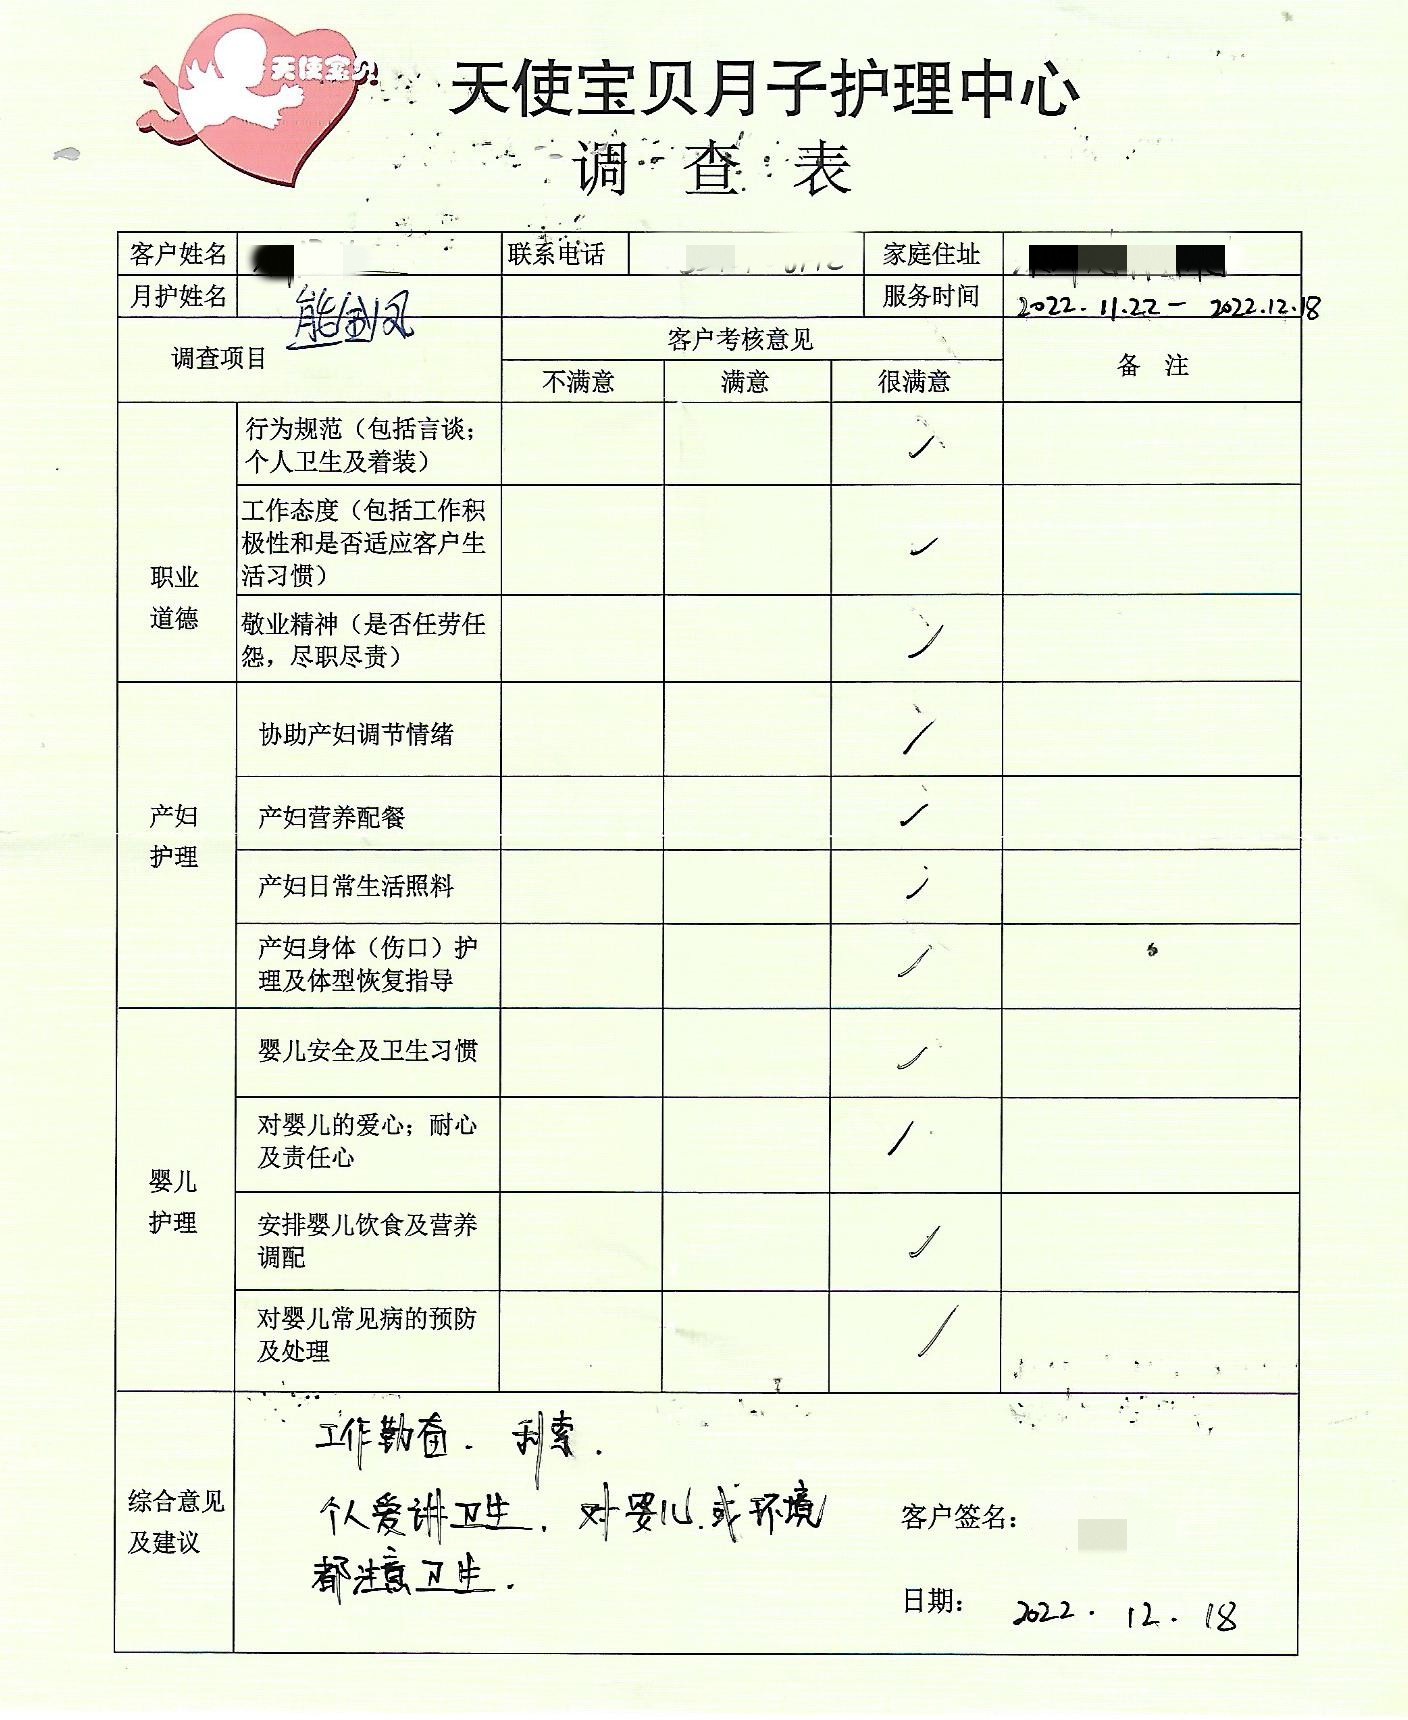 天使宝贝
天使宝贝月子护理中心
调查表
客户姓名 联系电话 家庭住址
月护姓名 服务时间 2022.11.22-2022.12.18
调查项目 客户考核意见 备注
不满意 满意 很满意
职业
道德
行为规范（包括言谈；
个人卫生及着装）
工作态度（包括工作积
极性和是否适应客户生
活习惯）
敬业精神（是否任劳任
怨，尽职尽责）
产妇
护理
协助产妇调节情绪
产妇营养配餐
产妇日常生活照料
产妇身体（伤口）护
理及体型恢复指导
婴儿
护理
婴儿安全及卫生习惯
对婴儿的爱心；耐心
及责任心
安排婴儿饮食及营养
调配
对婴儿常见病的预防
及处理
综合意见
及建议
工作勤奋.利索.
个人爱讲卫生.对婴儿.或环境
都注意卫生.
客户签名：
日期：2022.12.18